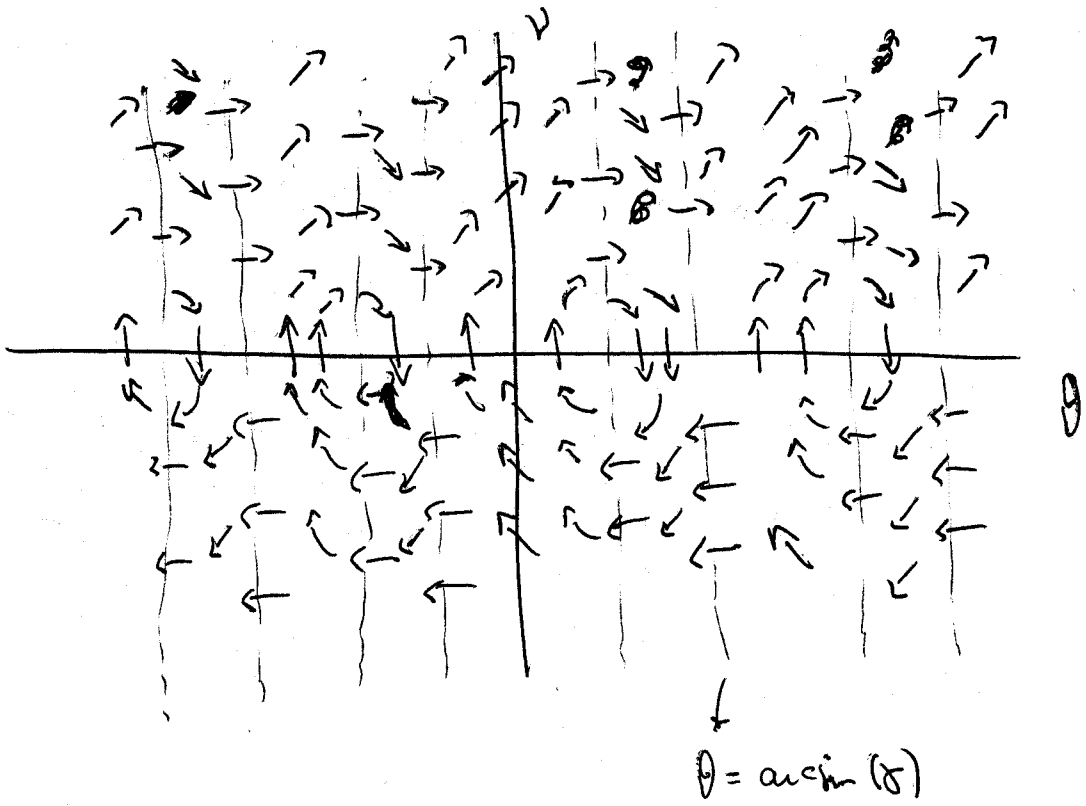 ν
θ
θ = arcsin (γ)